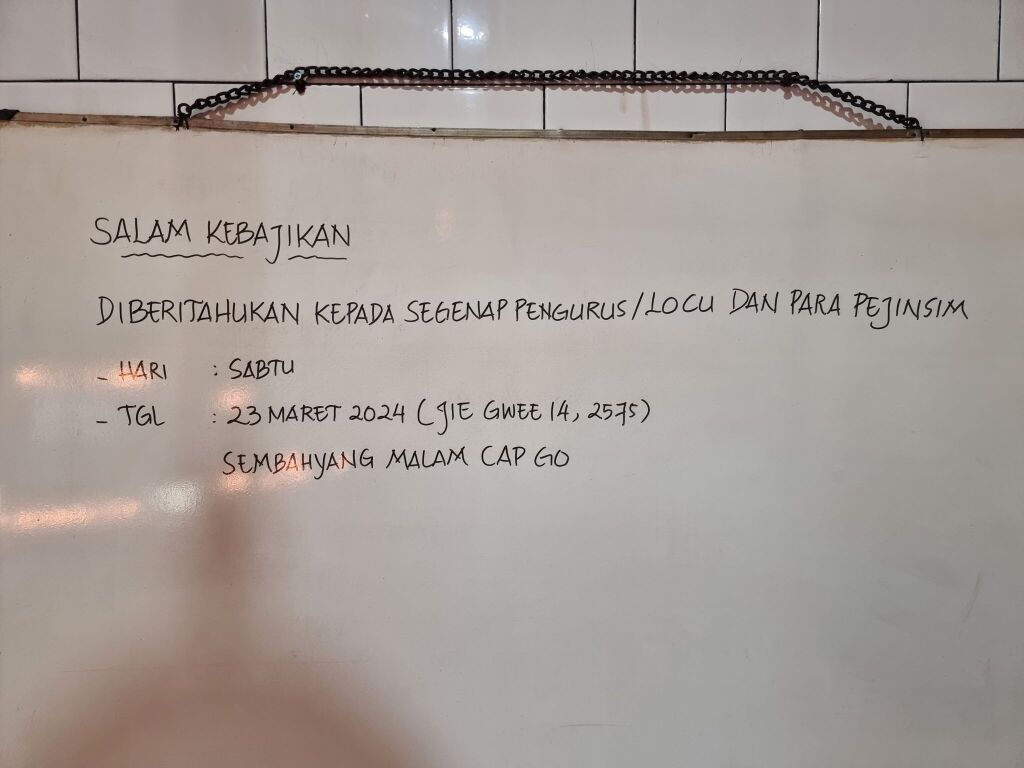 SALAM KEBAJIKAN
DIBERITAHUKAN KEPADA SEGENAP PENGURUS/LOCU DAN PARA PEJINSIM
- HARI : SABTU
- TGL : 23 MARET 2024 (JIE GWEE 14, 2575)
SEMBAHYANG MALAM CAP GO